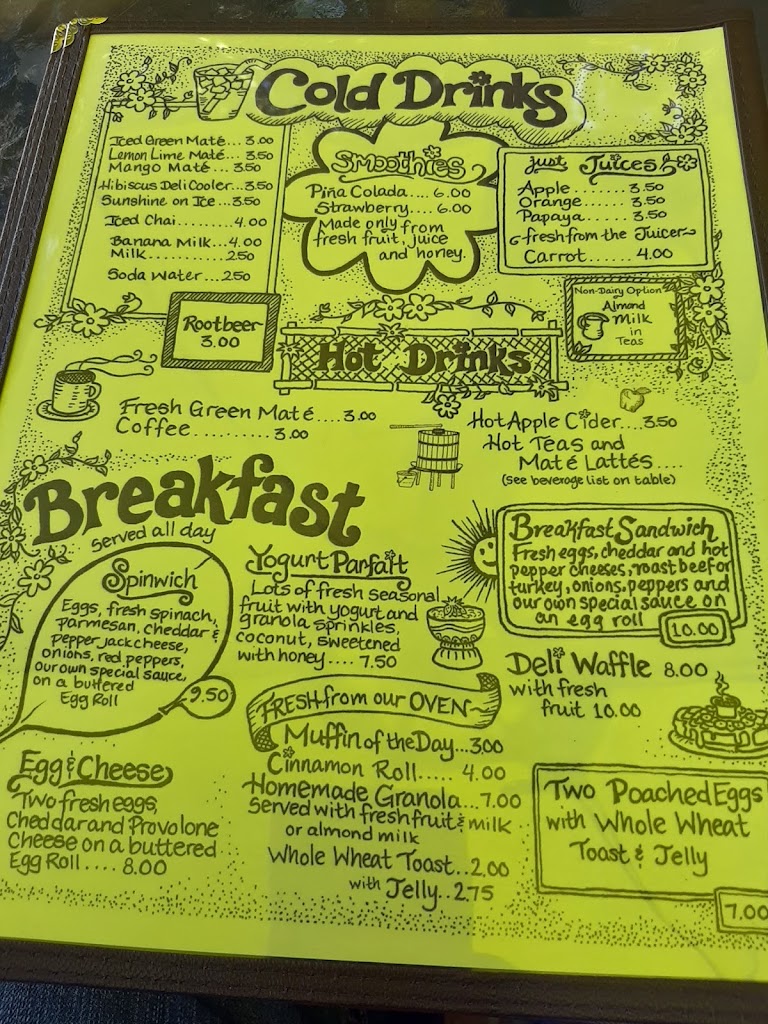 Cold Drinks
Iced Green Maté... 3.00
Lemon Lime Maté... 3.50
Mango Maté... 3.50
Hibiscus Deli Cooler...3.50
Sunshine on Ice...3.50
Iced Chai........4.00
Banana Milk...4.00
Milk............250
Soda Water....250
Rootbeer
3.00
Smoothies
Piña Colada.... 6.00
Strawberry.... 6.00
Made only from
fresh fruit, juice
and honey.
just Juices
Apple....... 3.50
Orange...... 3.50
Papaya...... 3.50
fresh from the Juicer
Carrot...... 4.00
Non-Dairy Option
Almond
Milk
in
Teas
Hot Drinks
Fresh Green Maté.... 3.00
Coffee.......... 3.00
Hot Apple Cider....3.50
Hot Teas and
Maté Lattés....
(see beverage list on table)
Breakfast
served all day
Spinwich
Eggs, fresh spinach,
parmesan, cheddar &
pepper jack cheese,
onions, red peppers,
our own special sauce,
on a buttered
Egg Roll
9.50
Egg & Cheese
Two fresh eggs,
Cheddar and Provolone
Cheese on a buttered
Egg Roll.... 8.00
Yogurt Parfait
Lots of fresh seasonal
fruit with yogurt and
granola sprinkles,
coconut, sweetened
with honey.... 7.50
FRESH from our OVEN
Muffin of the Day...3.00
Cinnamon Roll..... 4.00
Homemade Granola...7.00
Served with fresh fruit & milk
or almond milk
Whole Wheat Toast..2.00
with Jelly..2.75
Breakfast Sandwich
Fresh eggs, cheddar and hot
pepper cheeses, roast beef or
turkey, onions, peppers and
our own special sauce on
an egg roll
10.00
Deli Waffle 8.00
with fresh
fruit 10.00
Two Poached Eggs
with Whole Wheat
Toast & Jelly
7.00